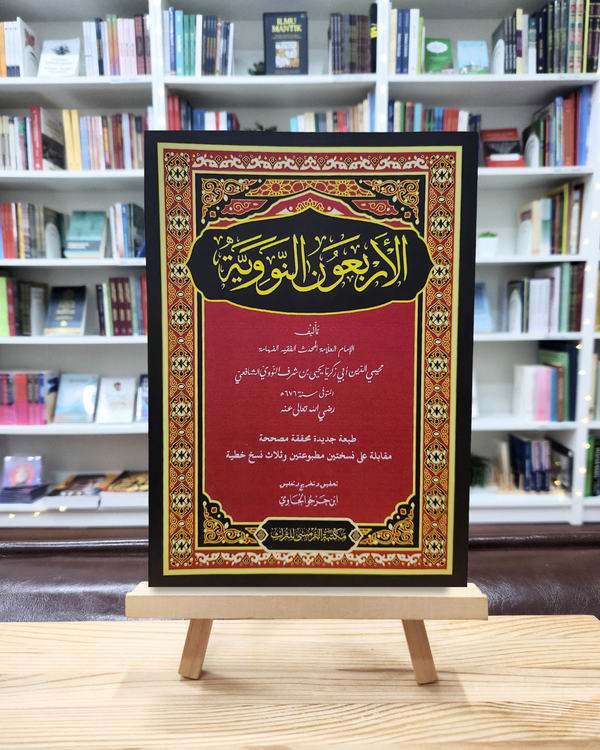 ILMU
MANTIK
الأَرْبَعُونَ النَّوَوِيَّة
تأليف
الإمام العلامة المحدث الفقيه الفهامة
محيي الدين أبي زكريا يحيى بن شرف النووي الشافعي
المتوفى سنة ٦٧٦هـ
رضي الله تعالى عنه
طبعة جديدة محققة مصححة
مقابلة على نسختين مطبوعتين وثلاث نسخ خطية
تحقيق وتخريج وتعليق
ابن حرجو الجاوي